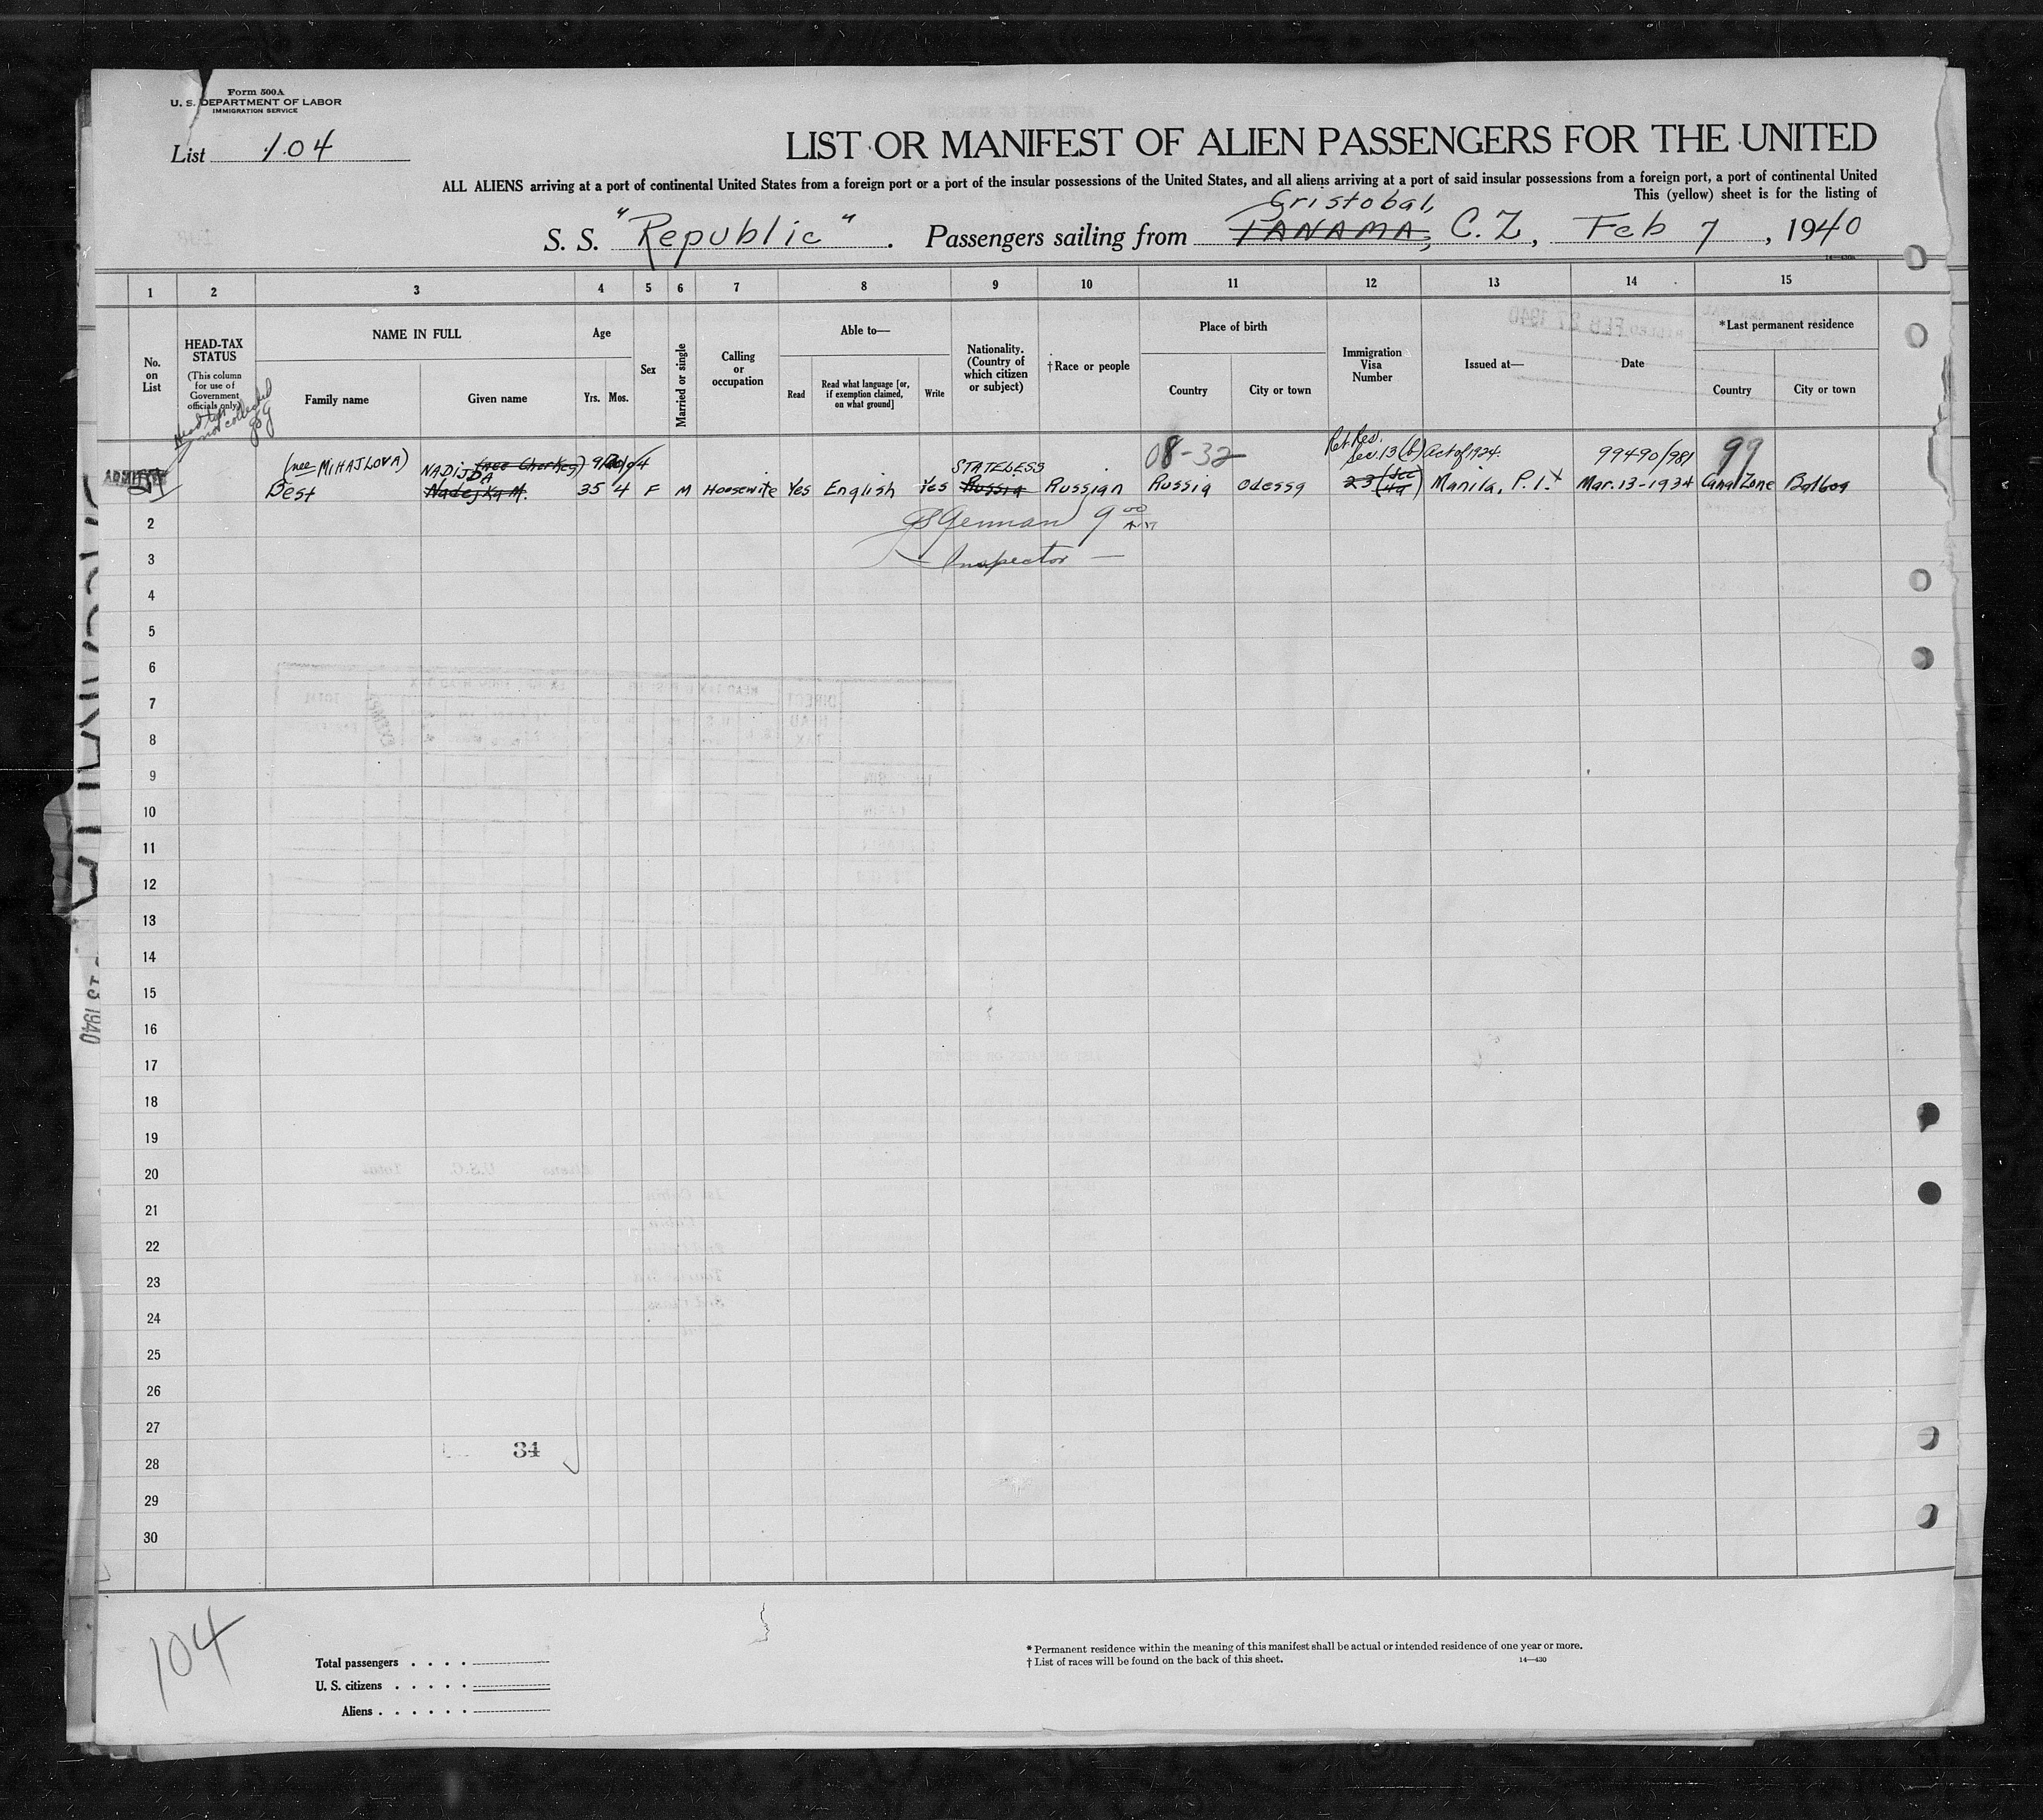 Form 500A
U. S. DEPARTMENT OF LABOR
IMMIGRATION SERVICE
List 104
LIST OR MANIFEST OF ALIEN PASSENGERS FOR THE UNITED
ALL ALIENS arriving at a port of continental United States from a foreign port or a port of the insular possessions of the United States, and all aliens arriving at a port of said insular possessions from a foreign port, a port of continental United
This (yellow) sheet is for the listing of
Cristobal,
S. S. "Republic". Passengers sailing from PANAMA, C. Z., Feb 7, 1940
1 2 3 4 5 6 7 8 9 10 11 12 13 14 15
No. on List
HEAD-TAX STATUS
(This column for use of Government officials only)
Head tax not collected
NAME IN FULL
Family name
Given name
Age
Yrs.
Mos.
Sex
Married or single
Calling or occupation
Able to—
Read
Read what language [or, if exemption claimed, on what ground]
Write
Nationality. (Country of which citizen or subject)
†Race or people
Place of birth
Country
City or town
Immigration Visa Number
Issued at—
Date
*Last permanent residence
Country
City or town
FEB 27 1940
08-32
Ret. Res.
Sec. 13 (b) Act of 1924.
99490/981
99
ADMITTED
(nee MIHAJLOVA) NADIJDA (nee Cherkes)
STATELESS
Best Nadejka M. 35 4 F M Housewife Yes English Yes Russia Russian Russia Odessa 23 (Sec 4a) Manila, P. I. Mar. 13-1934 Canal Zone Balboa
German 9 00 AM
Inspector
2
3
4
5
6
7
8
9
10
11
12
13
14
15
16
17
18
19
20
21
22
23
24
25
26
27
34
28
29
30
1940
104
Total passengers . . . .
U. S. citizens . . . . .
Aliens . . . . . .
* Permanent residence within the meaning of this manifest shall be actual or intended residence of one year or more.
† List of races will be found on the back of this sheet.
14—430